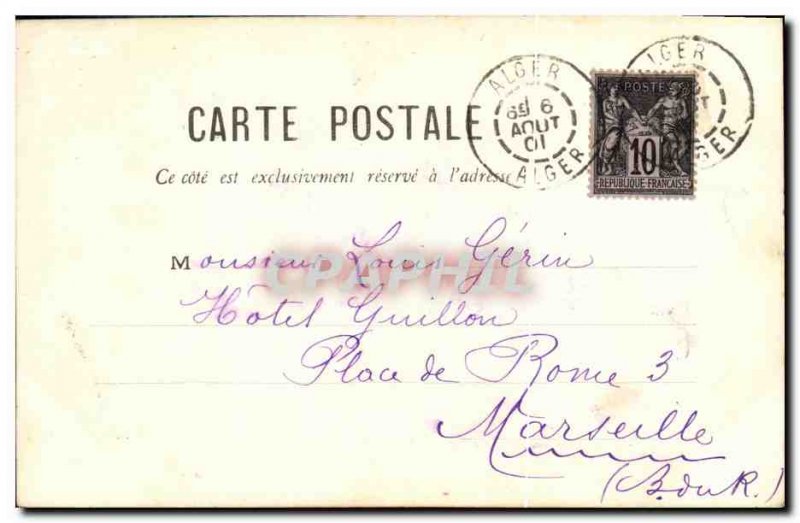 ALGER
6
AOUT
01
ALGER
ALGER
POSTE
10
REPUBLIQUE FRANÇAISE
CARTE POSTALE
Ce côté est exclusivement réservé à l'adresse
CPAPHIL
Monsieur Louis Gérin
Hôtel Guillon
Place de Rome 3
Marseille
(B. du R.)